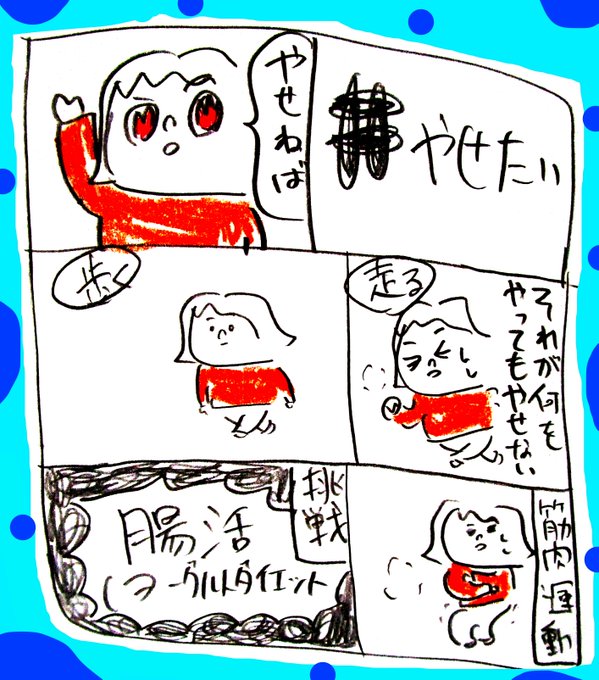 やせたい
やせねば
それが何を
やってもやせない
走る
歩く
筋肉運動
挑戦
腸活
(ヨーグルトダイエット